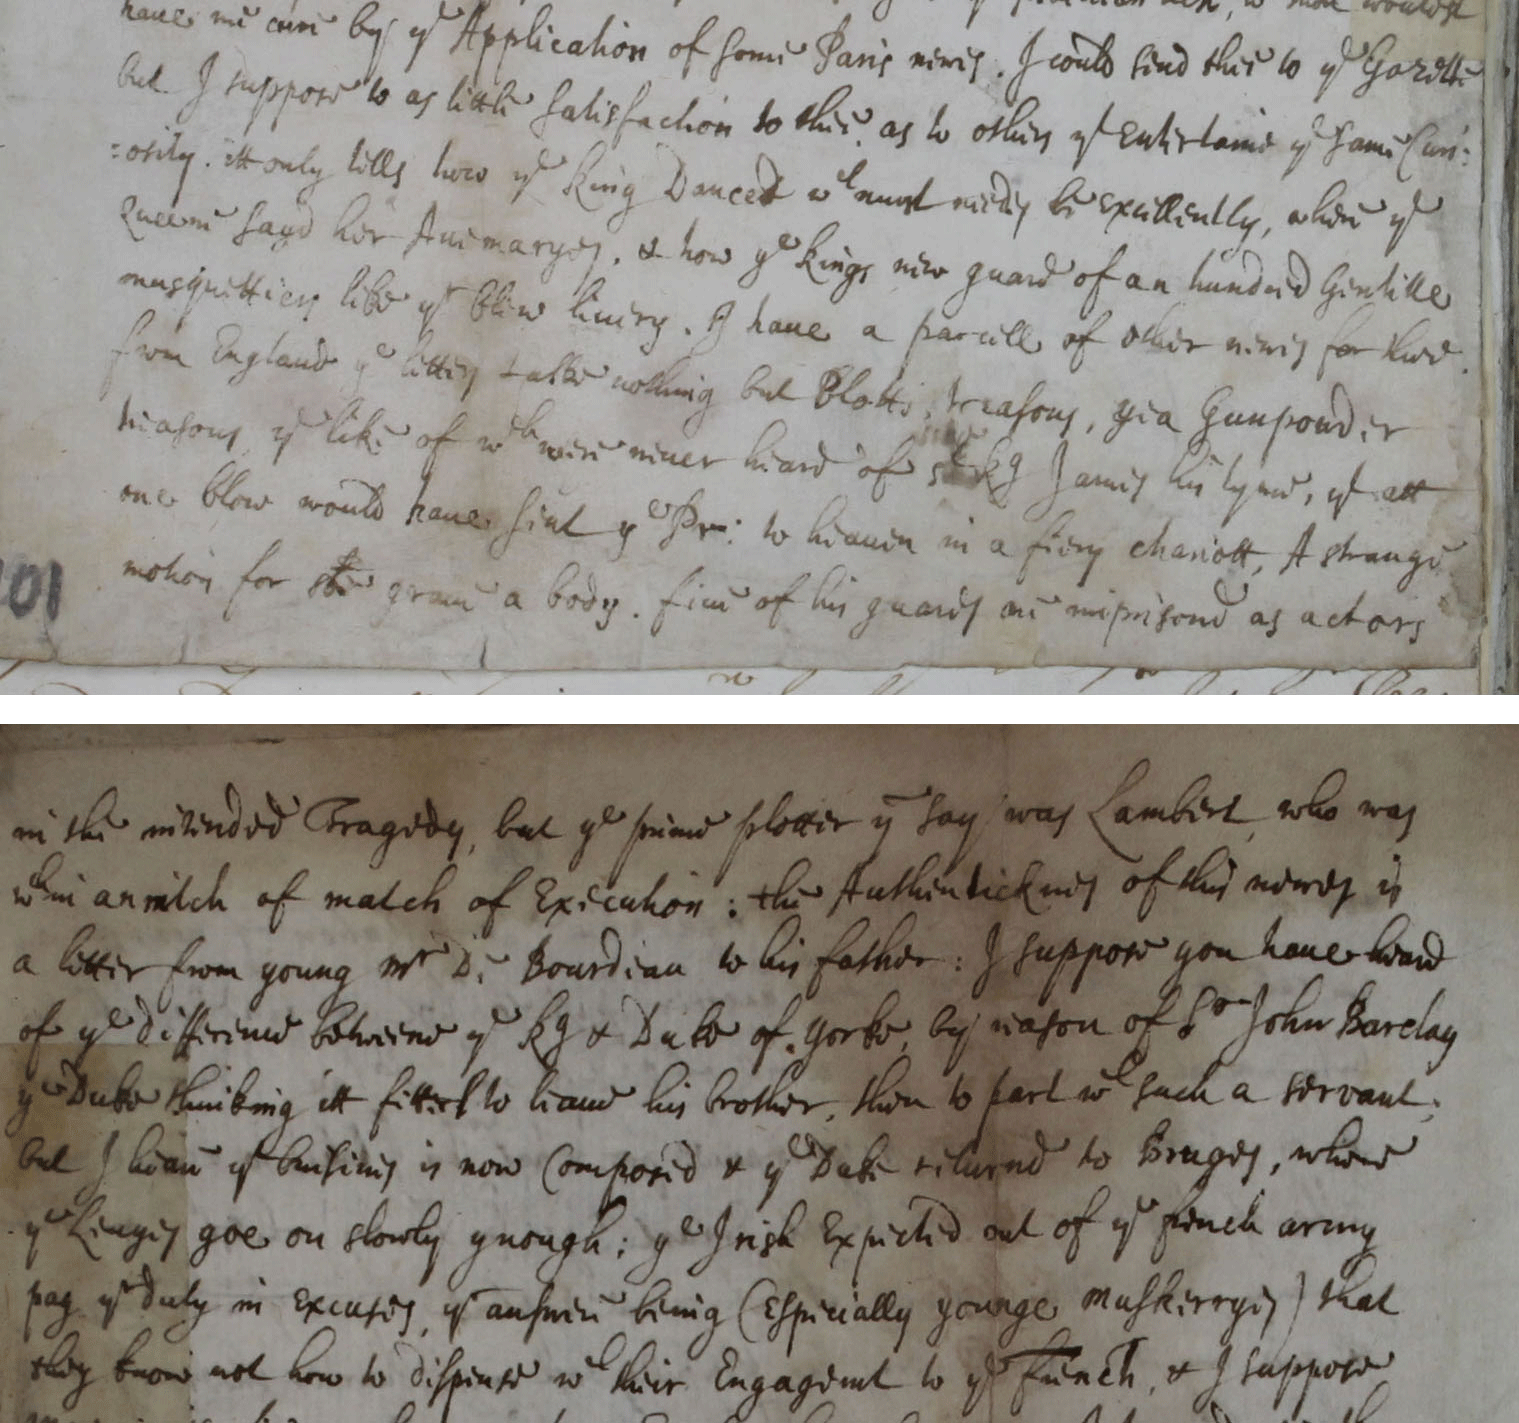 haue me cure by yͤ Application of some Paris newes. I could send this to yͤ Gazette
but I suppose to as little satisfaction to thee as to others yᵗ Entertaine yͤ same Curi:
:osity. itt only tells how yͤ King Danced wᶜʰ must needs be excellently, where yͤ
Queene sayd her Auemaryes, & how yͤ Kings new guard of an hundred Gentille
musquettiers like yͤ blew liuery. I haue a parcell of other newes for thee.
from England yͤ letters talke nothing but Plotts, treasons, yea Gunpowder
treasons yͤ like of wᶜʰ were neuer heard of Kg James his tyme, yᵗ att
one blow would haue sent yͤ Pr: to heauen in a fiery chariott, A strange
motion for soe graue a body. fiue of his guards are imprisond as actors
101
in the intended Tragedy, but yͤ prime plotter yͤy say was Lambert, who was
wᵗʰin an inch of match of Execution: the Authentickness of this newes is
a letter from young Mʳ De Bourdeau to his father: I suppose you haue heard
of yͤ difference betweene yͤ Kg & Duke of Yorke, by reason of Sʳ John Barclay
yͤ Duke thinking itt fitter to leaue his brother, then to part wᵗʰ such a servant;
but I heare yͤ businies is now Composed & yͤ Duke returned to Bruges, where
yͤ Leuyes goe on slowly ynough; yͤ Irish Expected out of yͤ french army
pay yͤir duty in excuses, yͤir answere being (Especially younge Muskerryes) that
they know not how to dispense wᵗʰ their Engagemt to yͤ french, & I suppose